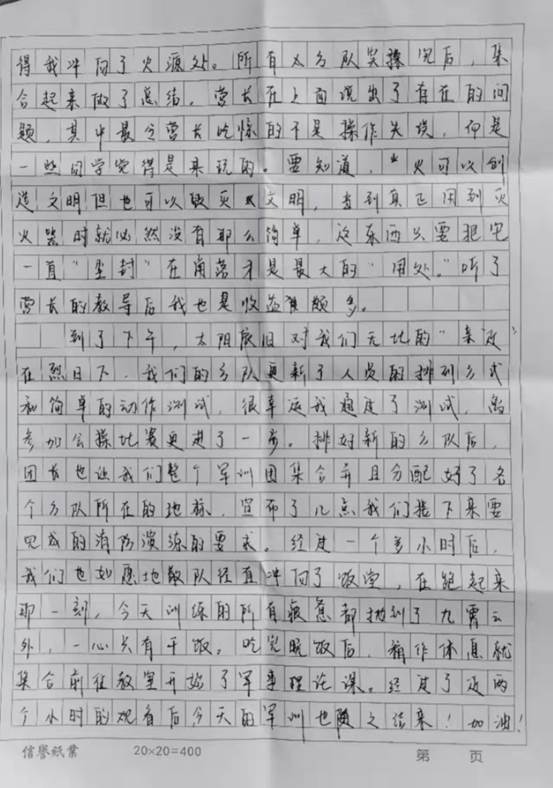 得我冲向了火源处。所有的分队实操完后，集
合起来做了总结。营长在上面说出了存在的问
题，其中最令营长吃惊的不是操作失误，而是
一些同学觉得是来玩的。要知道，"火可以创
造文明但也可以毁灭文明，当到真正用到灭
火器时就必然没有那么简单，这东西只要把它
一直"尘封"在角落才是最大的"用处。"听了
营长的教导后我也是收益颇多。
到了下午，太阳依旧对我们无比的"亲近"
在烈日下，我们的分队更新了人员的排列方式
和简单的动作测试，很幸运我通过了测试，离
参加会操比赛更进了一步。排好新的分队后，
团长也让我们整个军训团集合并且分配好了各
个分队所在的地标，宣布了几点我们接下来要
完成的消防演练的要求。经过一个多小时后，
我们也如愿地散队径直冲向了饭堂，在跑起来
那一刻，今天训练的所有疲惫都抛到了九霄云
外，一心只有干饭。吃完晚饭后，稍作休息就
集合前往教室开始了军事理论课。经过了近两
个小时的观看后今天的军训也随之结束！加油！
信誉纸业 20×20=400 第 页